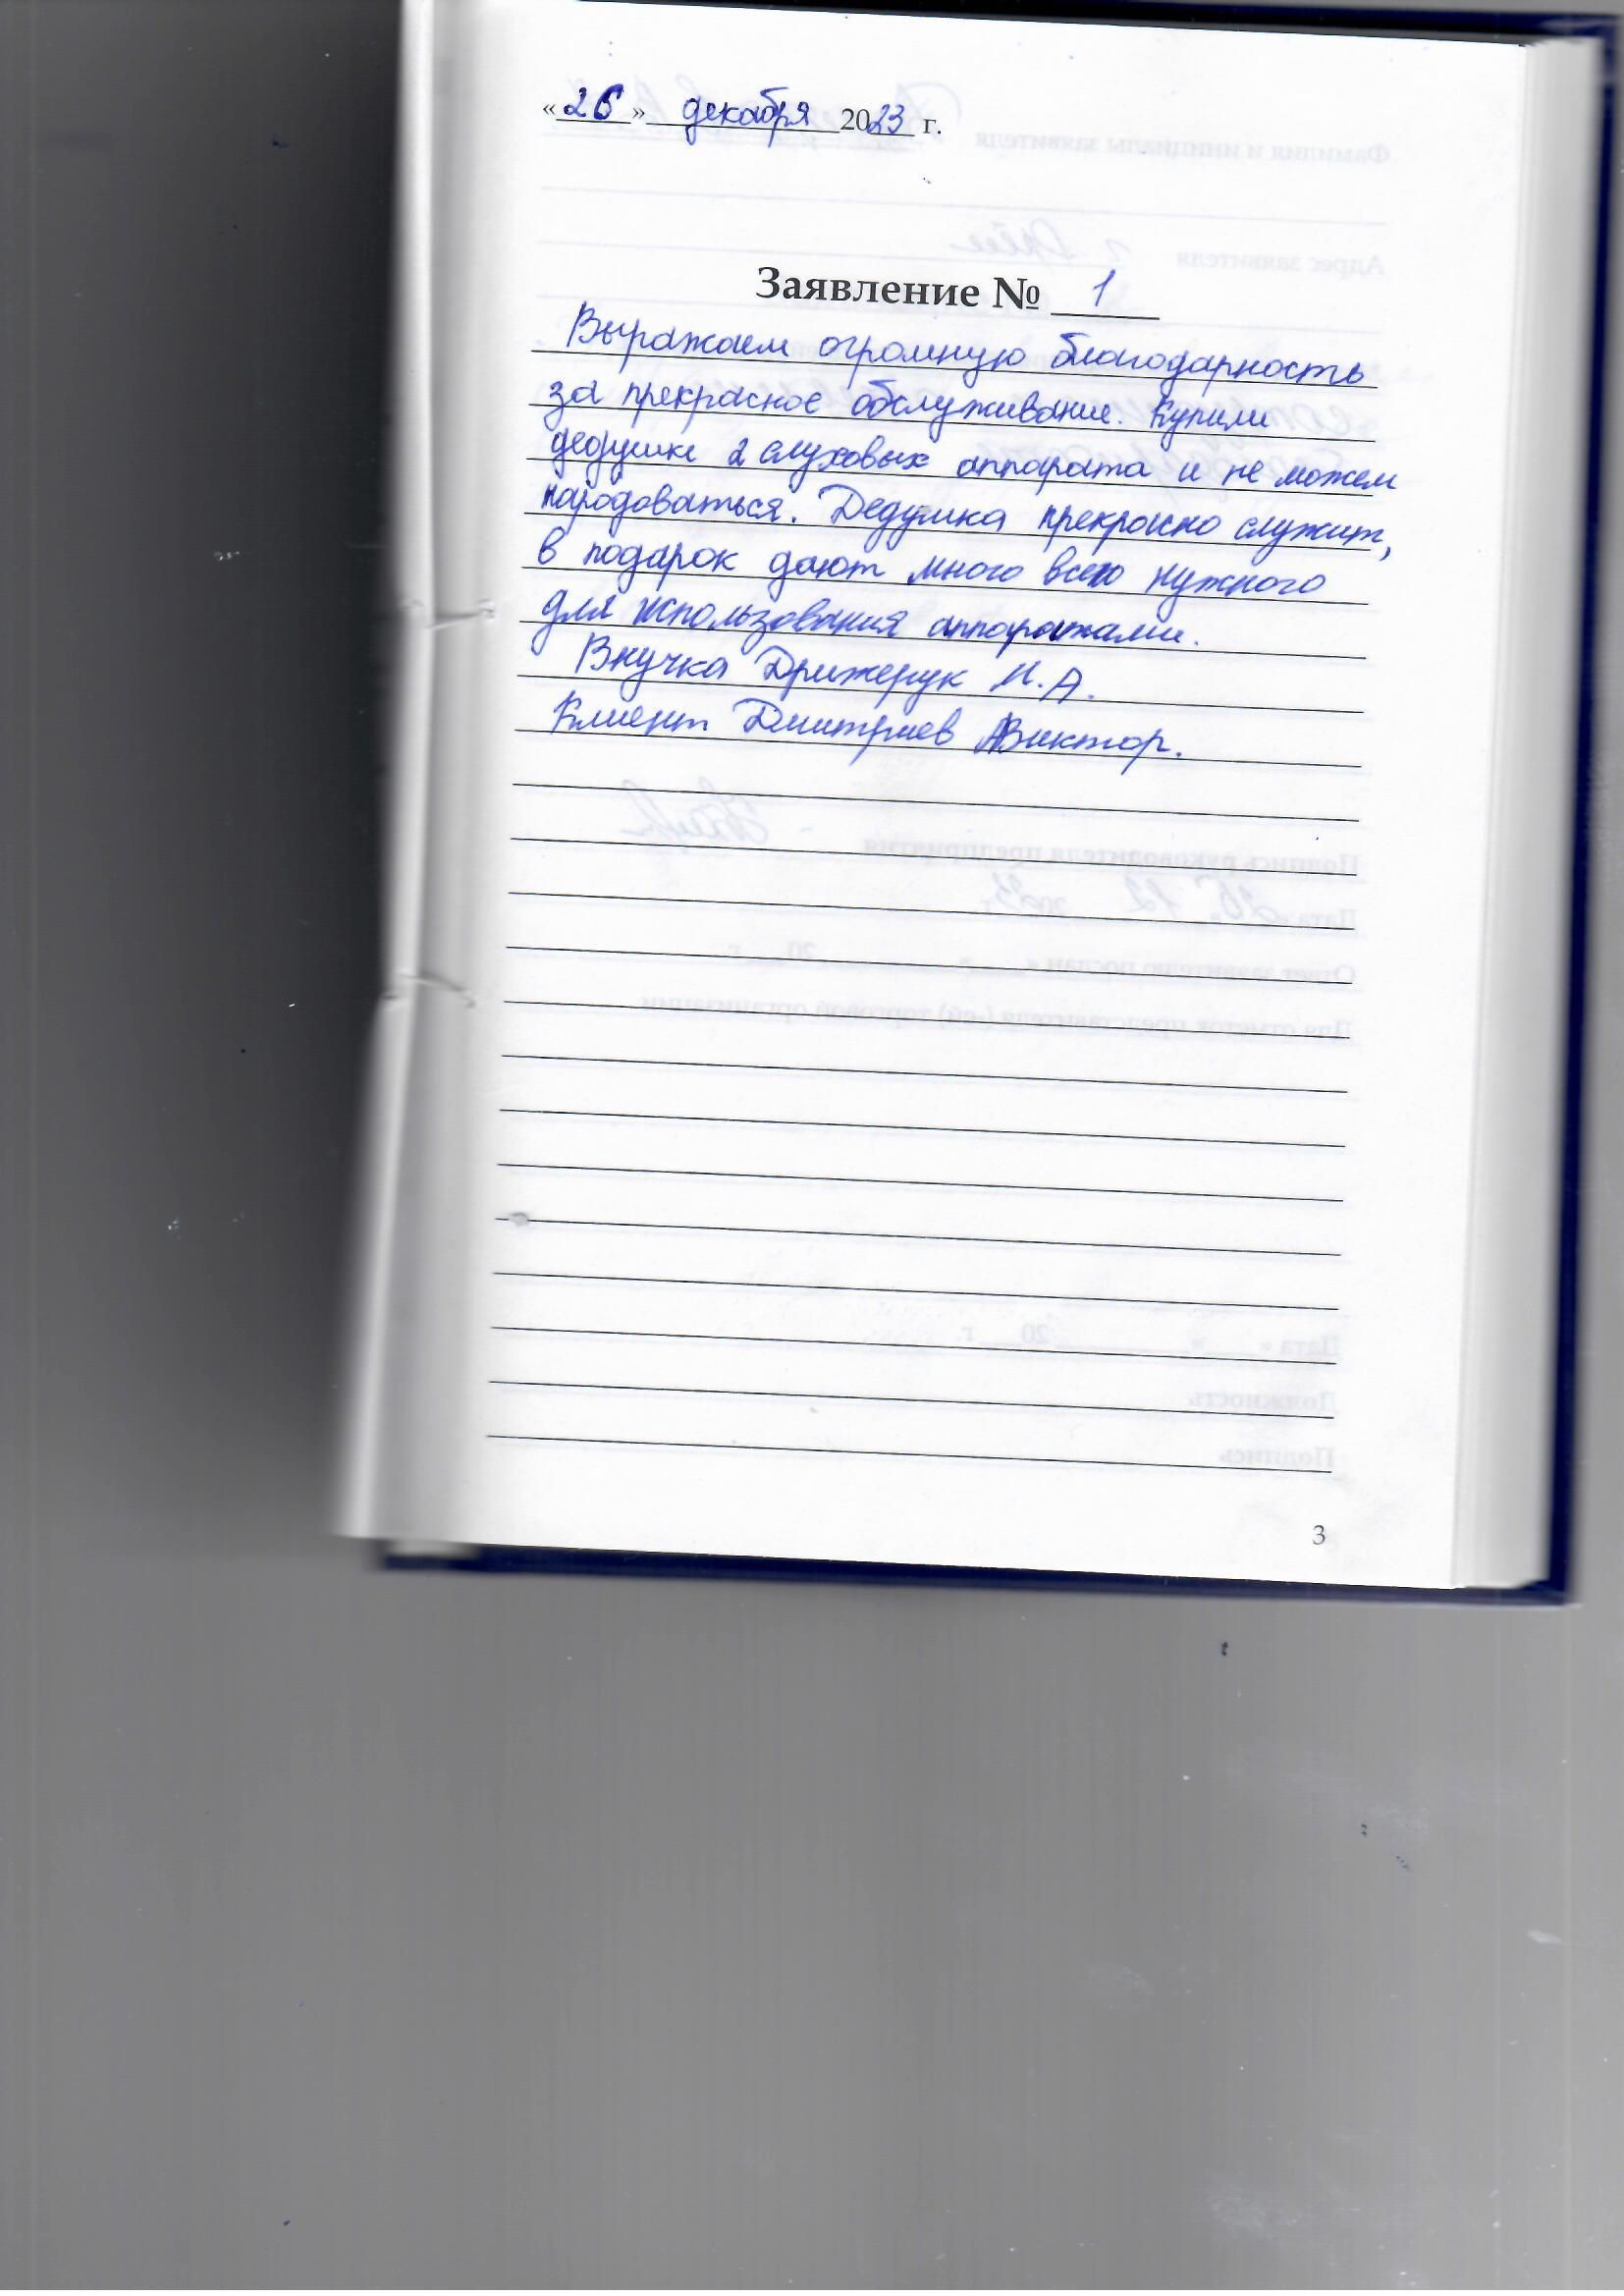 «26» декабря 2023 г.
Заявление № 1
Выражаем огромную благодарность
за прекрасное обслуживание. Купили
дедушке 2 слуховых аппарата и не можем
нарадоваться. Дедушка прекрасно служит,
в подарок дают много всего нужного
для использования аппаратами.
Внучка Дрижерук И.А.
Клиент Дмитриев Виктор.
3